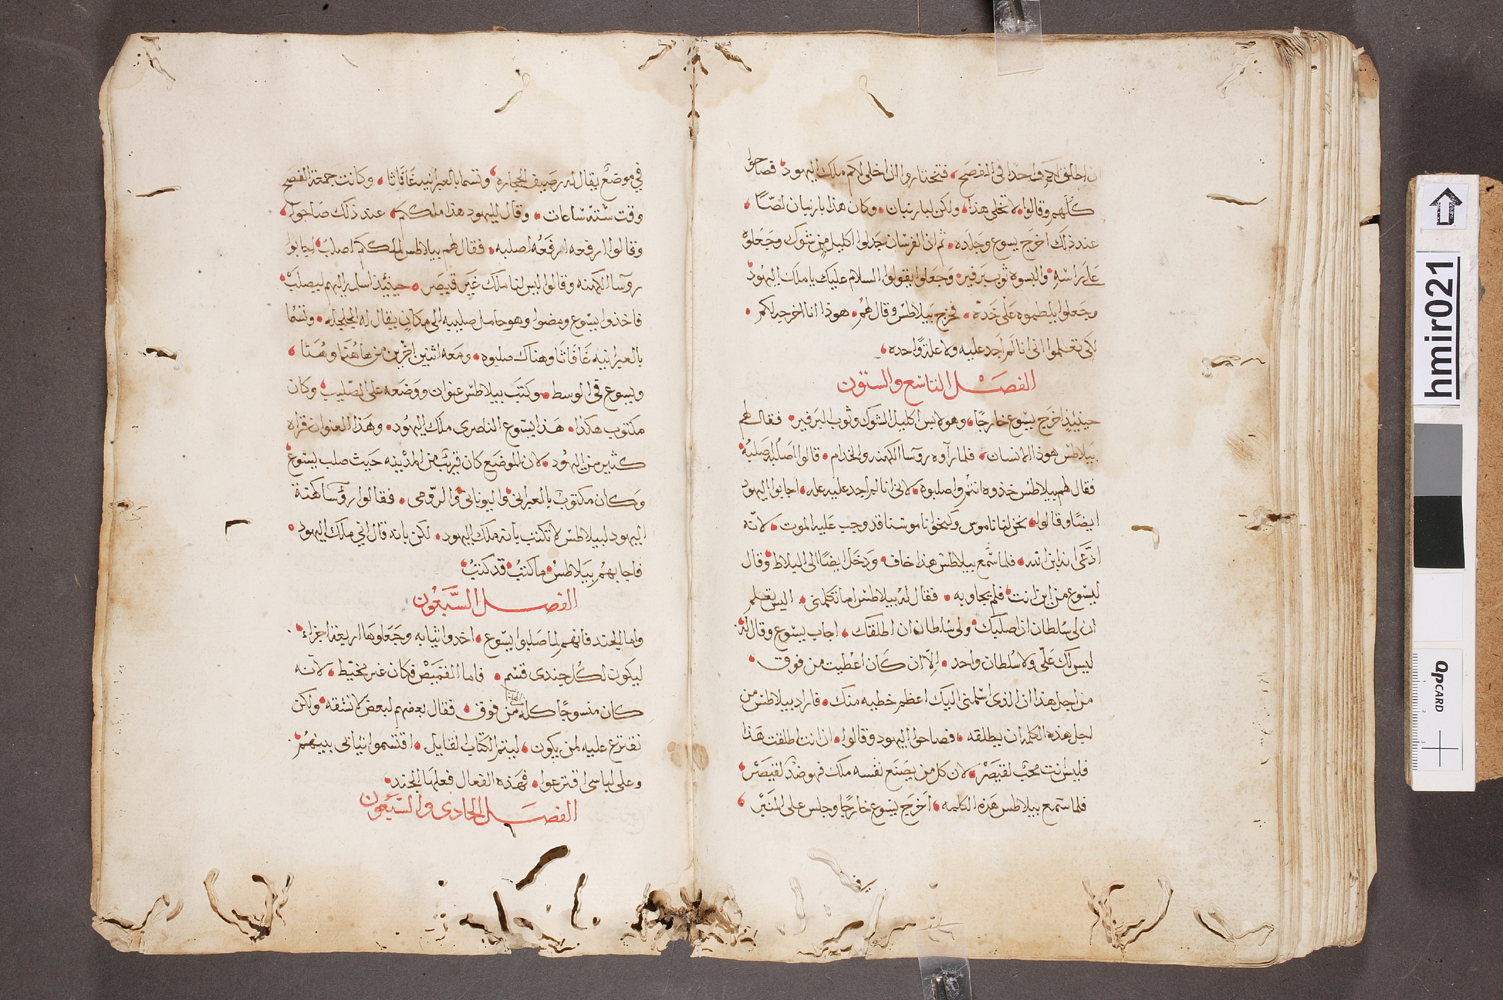 ان اطلق لكم واحدا في الفصح فتختاروا ان اخلي لكم ملك اليهود فصاحوا
كلهم وقالوا لا تخلي هذا ولكن لباربان وكان هذا باربان لصّا
عند ذلك اخرج يسوع وجلده ثم ان الفرسان جدلوا اكليل من شوك وجعلوه
على راسه والبسوه ثوب برفير وجعلوا يقولوا السلام عليك يا ملك اليهود
وجعلوا يلطموه على خدّه فخرج بيلاطس وقال لهم هوذا انا اخرجه اليكم
لكي تعلموا اني انا لم اجد عليه ولا علة واحده
الفصل التاسع والستون
حينئذ اخرج يسوع خارجًا وهو لابس اكليل الشوك وثوب البرفير فقال لهم
بيلاطس هوذا الانسان فلما رآوه روسا الكهنه والخدام قالوا اصلبه اصلبه
فقال لهم بيلاطس خذوه انتم واصلبوه لانى انا لم اجد عليه عله اجابوا اليهود
ايضًا وقالوا نحن لنا ناموس وكنحو ناموسنا قد وجب عليه الموت لانّه
ادّعى انه ابن الله فلما سمع بيلاطس هذا خاف ودخل ايضًا الى البلاط وقال
ليسوع من اين انت فلم يجاوبه فقال له بيلاطس اما تكلمني اليس تعلم
ان لي سلطان ان اصلبك ولي سلطان ان اطلقك اجاب يسوع وقال له
ليس لك علّي ولا سلطان واحد الّا ان كان اعطيت من فوق
من اجل هذا ان الذي اسلمني اليك اعظم خطيه منك فاراد بيلاطس من
اجل هذه الكلمه ان يطلقه فصاحوا اليهود وقالوا ان انت اطلقت هذا
فليس انت محبّ لقيصر لان كل من يصنع نفسه ملك فهو ضدّ لقيصر
فلما سمع بيلاطس هذه الكلمه اخرج يسوع خارجًا وجلس على المنبر
في موضع يقال له رصيف الحجاره وتسما بالعبرانيه غاباثا وكانت جمعة الفصح
وقت ستة ساعات وقال لليهود هذا ملككم عند ذلك صاحوا
وقالوا ارفعه ارفعه اصلبه فقال لهم بيلاطس لملككم اصلب اجابوا
روسا الكهنه وقالوا ليس لنا ملك غير قيصر حينئذ اسلمه اليهم ليصلب
فاخذوا يسوع ومضوا وهو حامل صليبه الى مكان يقال له الجلجله وتسما
بالعبرانيه غاغاثا وهناك صلبوه ومعه اثنين اخرين من هاهنا وهنا
ويسوع في الوسط وكتب بيلاطس عنوان ووضعه على الصليب وكان
مكتوب هكذا هذا يسوع الناصري ملك اليهود وهذا العنوان قراه
كثير من اليهود لان الموضع كان قريب من المدينه حيث صلب يسوع
وكان مكتوب بالعبراني واليوناني والرومي فقالوا رؤسا كهنة
اليهود لبيلاطس لا تكتب بانه ملك اليهود لكن بانه قال اني ملك اليهود
فاجابهم بيلاطس ما كتبت قد كتبت
الفصل السّبعون
واما الجند فانهم لما صلبوا يسوع اخدوا ثيابه وجعلوها اربعة اجزاء
ليكون لكل جندي قسم فاما القميص فكان غير مخيط لانّه
كان منسوجًا كله من فوق فقال بعضهم لبعض لا نشقه ولكن
نقترع عليه لمن يكون ليتم الكتاب القايل اقتسموا ثيابي بينهم
وعلى لباسي اقترعوا فهذه الفعال فعلها الجند
الفصل الحادي والسّبعون